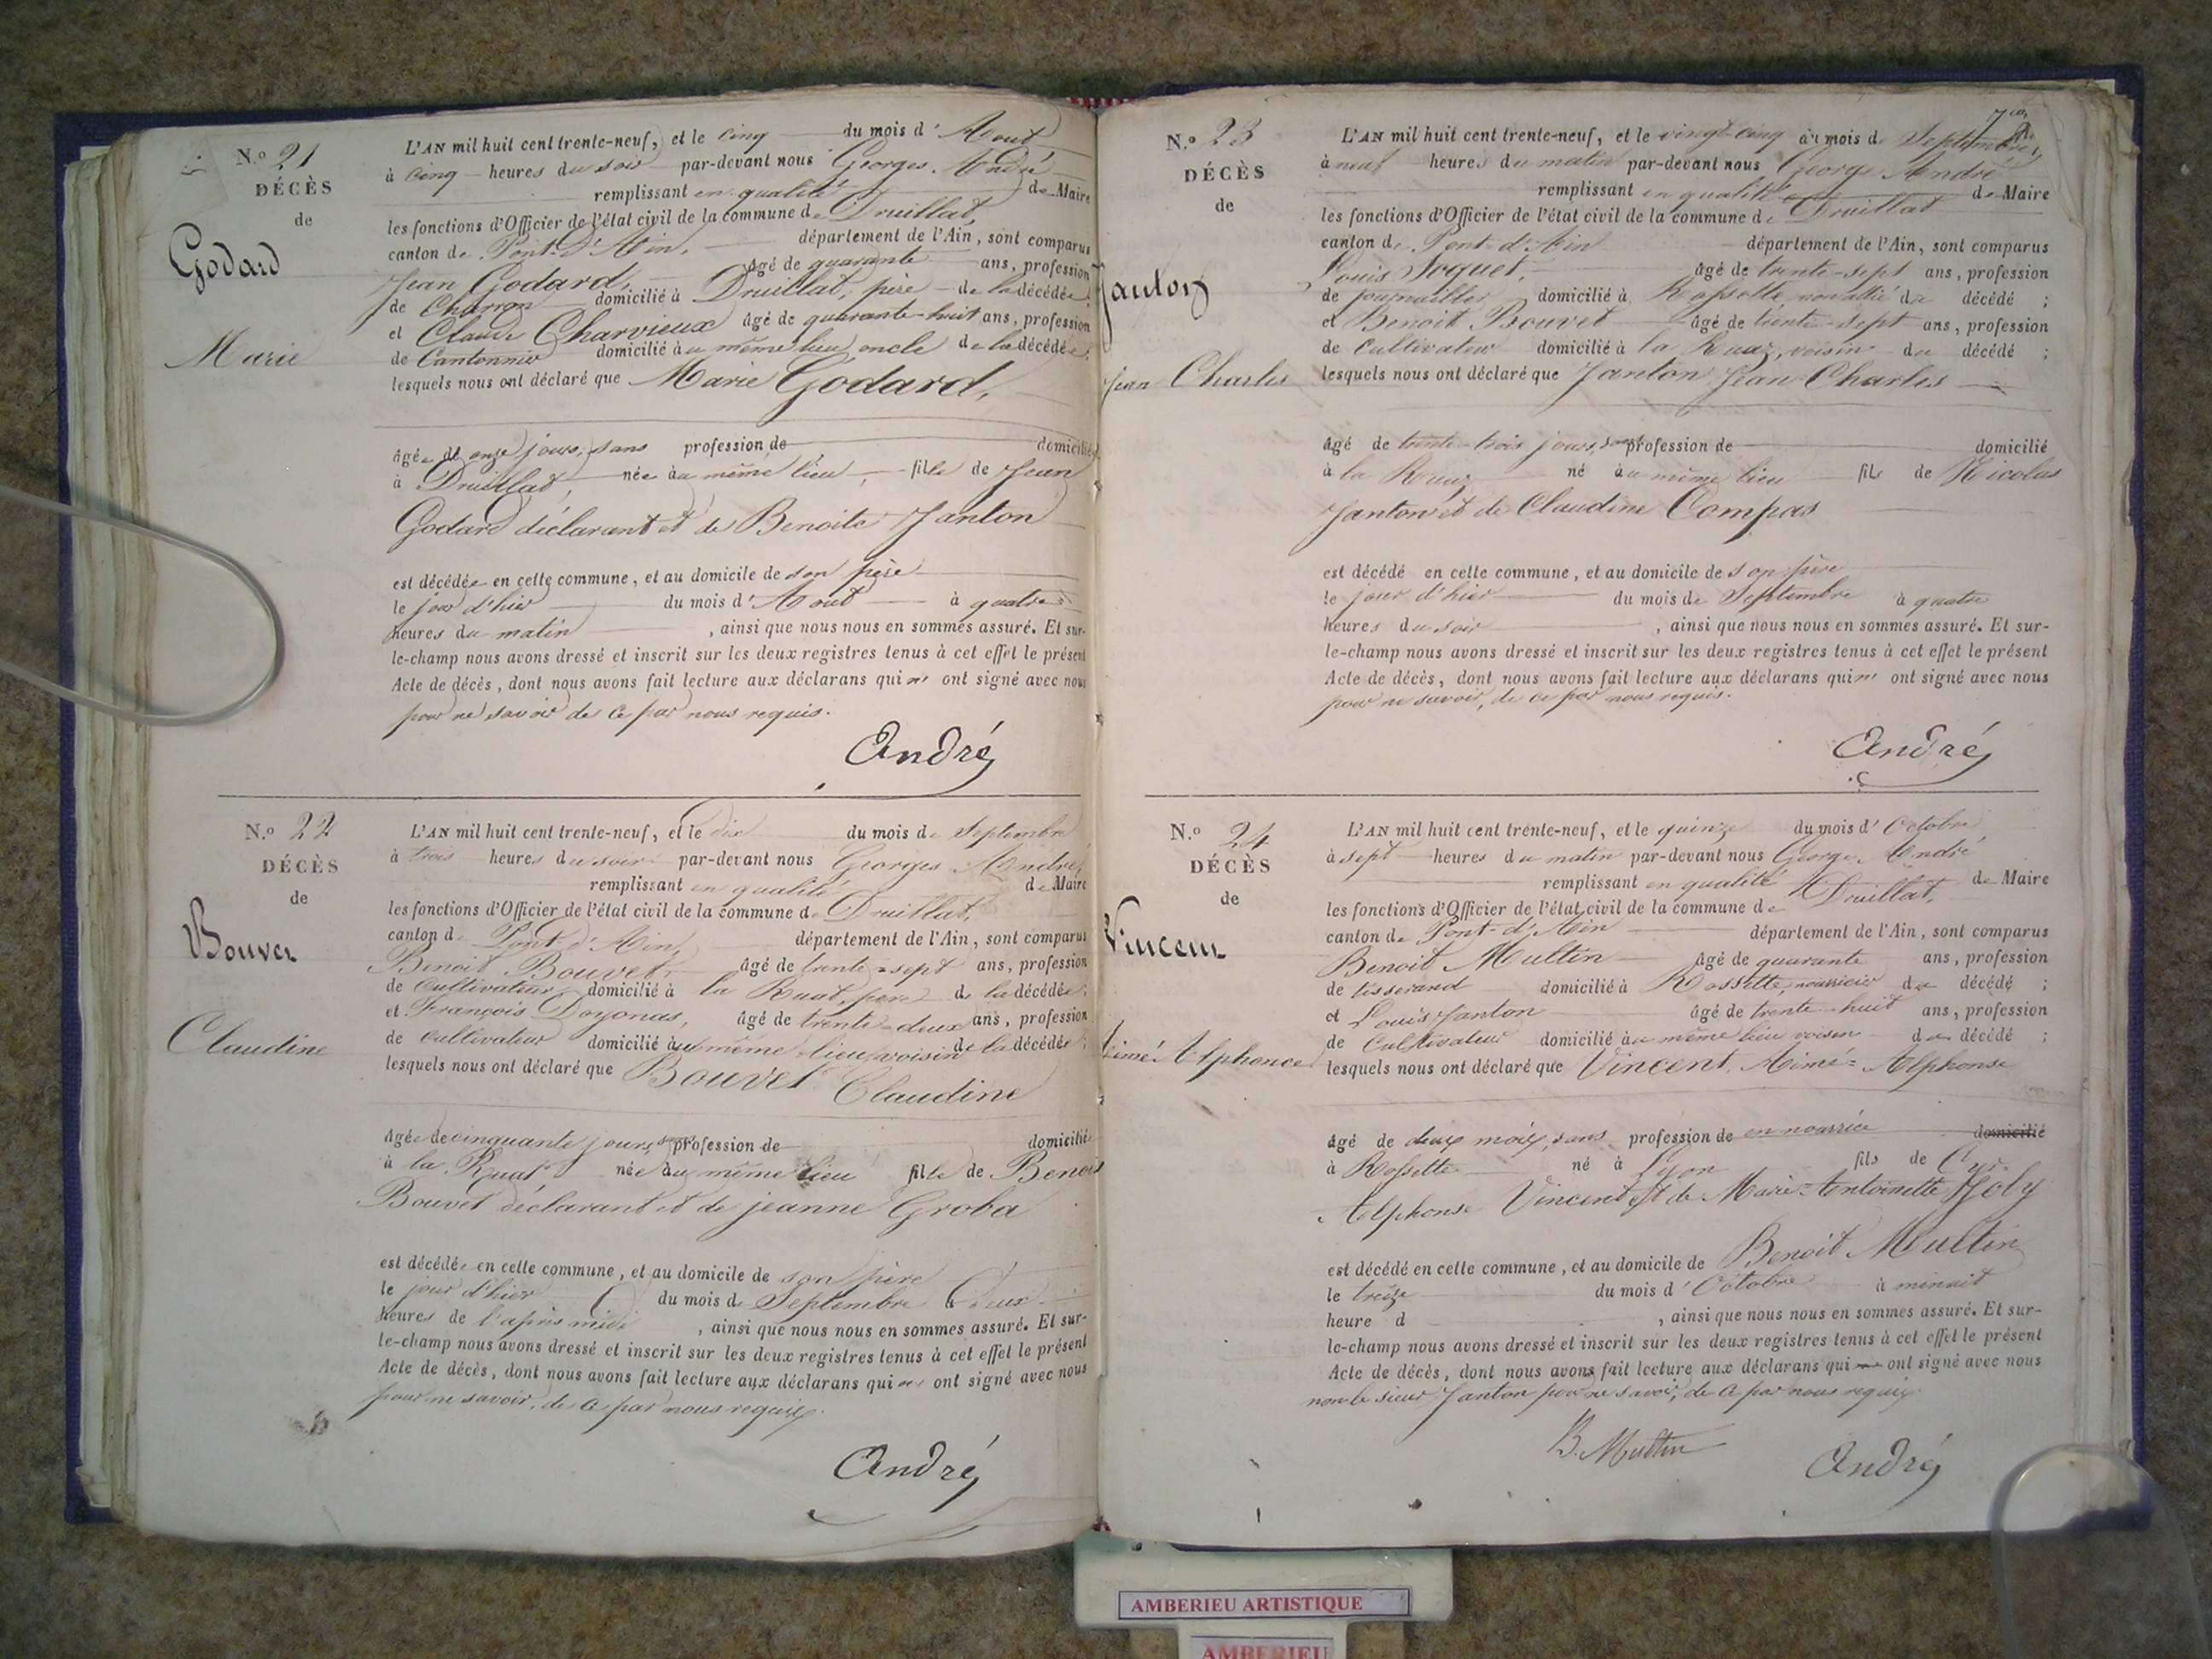 N.º 21
DÉCÈS
de
Godard
Marie
L'AN mil huit cent trente-neuf, et le cinq du mois d'Aout
à cinq heures du soir par-devant nous Georges André
remplissant en qualité de Maire
les fonctions d'Officier de l'état civil de la commune de Druillat,
canton de Pont-d'Ain, département de l'Ain, sont comparus
Jean Godard, âgé de quarante ans, profession
de Charron domicilié à Druillat, père de la décédée ;
et Claude Charvieux âgé de quarante-huit ans, profession
de Cantonnier domicilié au même lieu, oncle de la décédée ;
lesquels nous ont déclaré que Marie Godard,
âgée de onze jours, sans profession de domiciliée
à Druillat, née au même lieu, fille de Jean
Godard déclarant et de Benoite Janton
est décédée en cette commune, et au domicile de son père
le jour d'hier du mois d'Aout à quatre
heures du matin , ainsi que nous nous en sommes assuré. Et sur-
le-champ nous avons dressé et inscrit sur les deux registres tenus à cet effet le présent
Acte de décès, dont nous avons fait lecture aux déclarans qui n' ont signé avec nous
pour ne savoir de ce par nous requis.
André
N.º 22
DÉCÈS
de
Bouvet
Claudine
L'AN mil huit cent trente-neuf, et le dix du mois de Septembre
à trois heures du soir par-devant nous Georges André,
remplissant en qualité de Maire
les fonctions d'Officier de l'état civil de la commune de Druillat,
canton de Pont-d'Ain, département de l'Ain, sont comparus
Benoit Bouvet, âgé de trente-sept ans, profession
de Cultivateur domicilié à la Ruat, père de la décédée ;
et François Doyonas, âgé de trente-deux ans, profession
de cultivateur domicilié au même lieu, voisin de la décédée ;
lesquels nous ont déclaré que Bouvet
Claudine
âgée de cinquante jours, sans profession de domiciliée
à la Ruat née au même lieu fille de Benoit
Bouvet déclarant et de jeanne Groba
est décédée en cette commune, et au domicile de son père
le jour d'hier du mois de Septembre à deux
heures de l'après midi , ainsi que nous nous en sommes assuré. Et sur-
le-champ nous avons dressé et inscrit sur les deux registres tenus à cet effet le présent
Acte de décès, dont nous avons fait lecture aux déclarans qui n' ont signé avec nous
pour ne savoir, de ce par nous requis.
André
N.º 23
DÉCÈS
de
Janton
Jean Charles
L'AN mil huit cent trente-neuf, et le vingt-cinq du mois de Septembre,
à neuf heures du matin par-devant nous George André
remplissant en qualité de Maire
les fonctions d'Officier de l'état civil de la commune de Druillat
canton de Pont-d'Ain département de l'Ain, sont comparus
Louis âgé de trente-sept ans, profession
de journallier domicilié à Rossette, du décédé ;
et Benoit Bouvet âgé de trente-sept ans, profession
de Cultivateur domicilié à la Ruaz, voisin du décédé ;
lesquels nous ont déclaré que Janton Jean Charles
âgé de trente-trois jours, sans profession de domicilié
à la Ruaz né au même lieu fils de Nicolas
Janton et de Claudine Compas
est décédé en cette commune, et au domicile de son père
le jour d'hier du mois de Septembre à quatre
heures du soir , ainsi que nous nous en sommes assuré. Et sur-
le-champ nous avons dressé et inscrit sur les deux registres tenus à cet effet le présent
Acte de décès, dont nous avons fait lecture aux déclarans qui n' ont signé avec nous
pour ne savoir, de ce par nous requis.
André
N.º 24
DÉCÈS
de
Vincent
Aimé Alphonce
L'AN mil huit cent trente-neuf, et le quinze du mois d'Octobre,
à sept heures du matin par-devant nous George André
remplissant en qualité de Maire
les fonctions d'Officier de l'état civil de la commune de Druillat,
canton de Pont-d'Ain département de l'Ain, sont comparus
Benoit Multin âgé de quarante ans, profession
de tisserand domicilié à Rossette, nourricier du décédé ;
et Louis Janton âgé de trente-huit ans, profession
de Cultivateur domicilié au même lieu voisin du décédé ;
lesquels nous ont déclaré que Vincent, Aimé=Alphonse
âgé de deux mois, sans profession de en nourrice domicilié
à Rossette né à Lyon fils de Cyr-
Alphonse Vincent et de Marie=Antoinette Joly
est décédé en cette commune, et au domicile de Benoit Multin
le treize du mois d'Octobre à minuit
heure d , ainsi que nous nous en sommes assuré. Et sur-
le-champ nous avons dressé et inscrit sur les deux registres tenus à cet effet le présent
Acte de décès, dont nous avons fait lecture aux déclarans qui ont signé avec nous
non le sieur Janton pour ne savoir, de ce par nous requis.
B. Multin
André
AMBERIEU ARTISTIQUE
AMBERIEU